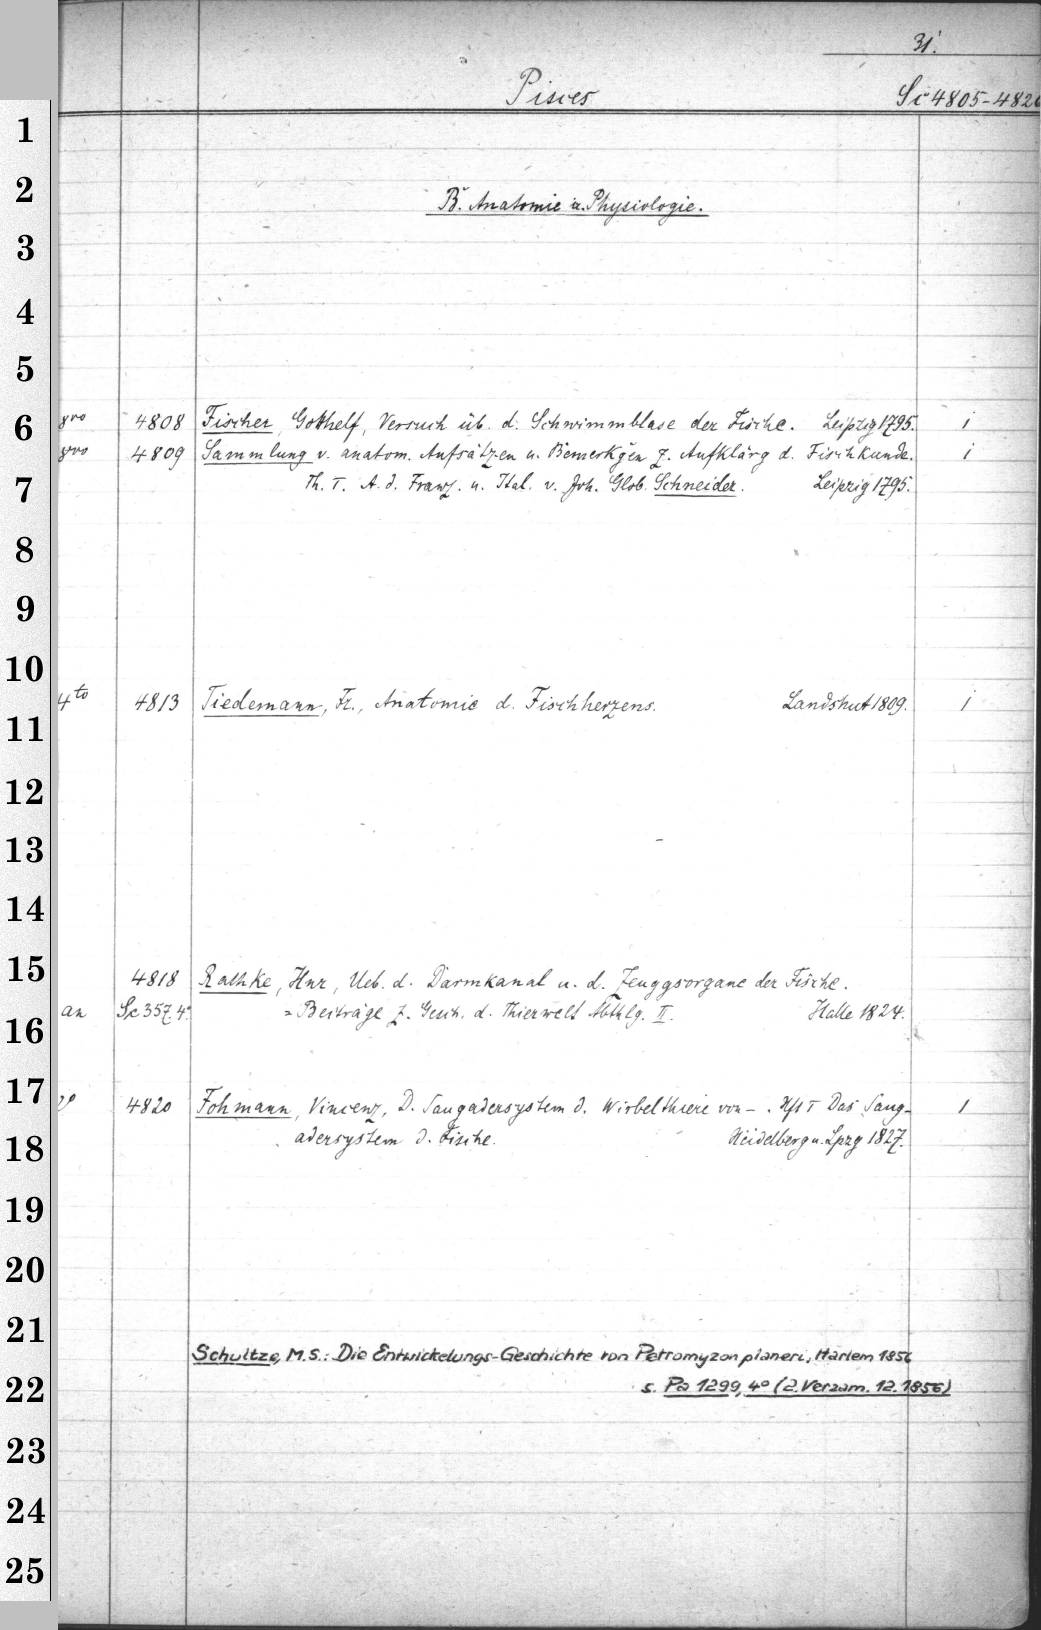 31.
Pisces Sc 4805-4820
1
2
B. Anatomie u. Physiologie.
3
4
5
6
8vo 4808 Fischer, Gotthelf, Versuch üb. d. Schwimmblase der Fische. Leipzig 1795. 1
8vo 4809 Sammlung v. anatom. Aufsätzen u. Bemerkgen z. Aufklärg d. Fischkunde. 1
7
Th. I. A. d. Franz. u. Ital. v. Joh. Glob. Schneider. Leipzig 1795.
8
9
10
4to 4813 Tiedemann, Fr., Anatomie d. Fischherzens. Landshut 1809. 1
11
12
13
14
15
4818 Rathke, Hnr, Ueb. d. Darmkanal u. d. Zeuggsorgane der Fische.
an Sc 357.4° = Beiträge z. Gesch. d. Thierwelt Abthlg. II. Halle 1824.
16
17
4820 Fohmann, Vincenz, D. Saugadersystem d. Wirbelthiere von - . Hft I Das Saug- 1
18
adersystem d. Fische. Heidelberg u. Lpzg 1827.
19
20
21
Schultze, M.S.: Die Entwickelungs-Geschichte von Petromyzon planeri, Harlem 1856
22
s. Pa 1299, 4° (2. Verzam. 12. 1856)
23
24
25